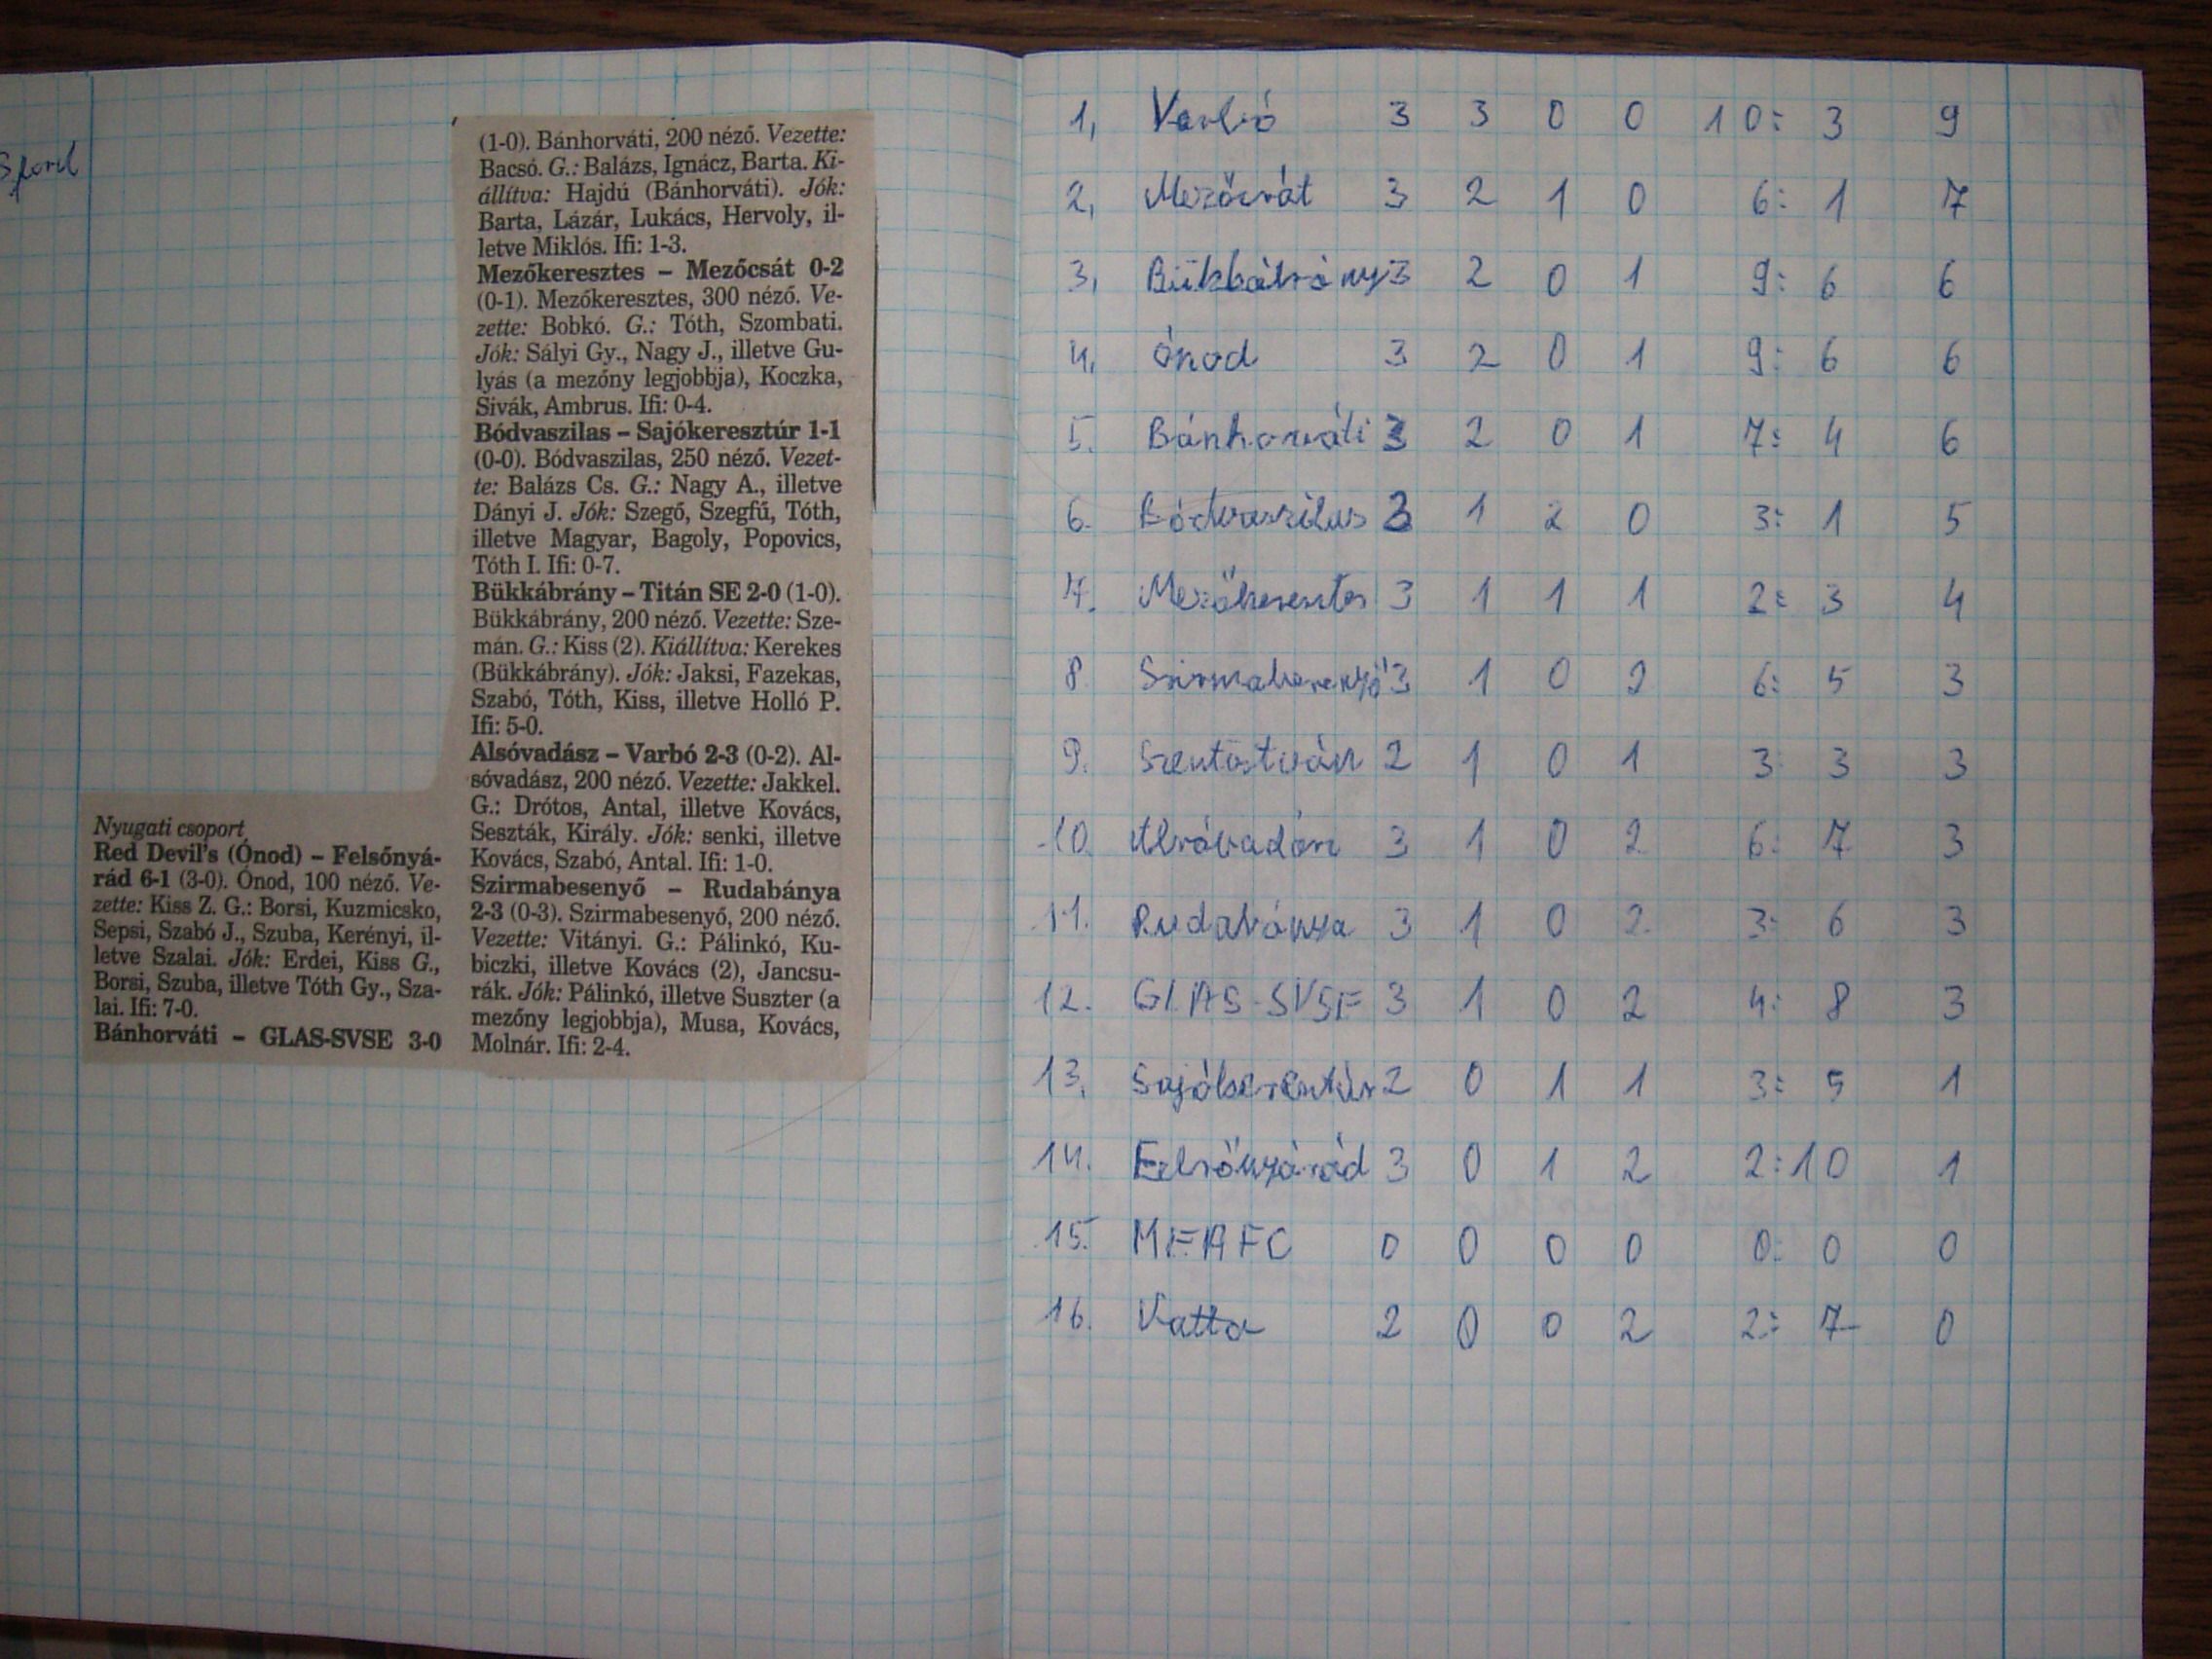 3. ford
Nyugati csoport
Red Devil's (Ónod) – Felsőnyá-
rád 6-1 (3-0). Ónod, 100 néző. Ve-
zette: Kiss Z. G.: Borsi, Kuzmicsko,
Sepsi, Szabó J., Szuba, Kerényi, il-
letve Szalai. Jók: Erdei, Kiss G.,
Borsi, Szuba, illetve Tóth Gy., Sza-
lai. Ifi: 7-0.
Bánhorváti – GLAS-SVSE 3-0
(1-0). Bánhorváti, 200 néző. Vezette:
Bacsó. G.: Balázs, Ignácz, Barta. Ki-
állítva: Hajdú (Bánhorváti). Jók:
Barta, Lázár, Lukács, Hervoly, il-
letve Miklós. Ifi: 1-3.
Mezőkeresztes – Mezőcsát 0-2
(0-1). Mezőkeresztes, 300 néző. Ve-
zette: Bobkó. G.: Tóth, Szombati.
Jók: Sályi Gy., Nagy J., illetve Gu-
lyás (a mezőny legjobbja), Koczka,
Sivák, Ambrus. Ifi: 0-4.
Bódvaszilas – Sajókeresztúr 1-1
(0-0). Bódvaszilas, 250 néző. Vezet-
te: Balázs Cs. G.: Nagy A., illetve
Dányi J. Jók: Szegő, Szegfű, Tóth,
illetve Magyar, Bagoly, Popovics,
Tóth I. Ifi: 0-7.
Bükkábrány – Titán SE 2-0 (1-0).
Bükkábrány, 200 néző. Vezette: Sze-
mán. G.: Kiss (2). Kiállítva: Kerekes
(Bükkábrány). Jók: Jaksi, Fazekas,
Szabó, Tóth, Kiss, illetve Holló P.
Ifi: 5-0.
Alsóvadász – Varbó 2-3 (0-2). Al-
sóvadász, 200 néző. Vezette: Jakkel.
G.: Drótos, Antal, illetve Kovács,
Seszták, Király. Jók: senki, illetve
Kovács, Szabó, Antal. Ifi: 1-0.
Szirmabesenyő – Rudabánya
2-3 (0-3). Szirmabesenyő, 200 néző.
Vezette: Vitányi. G.: Pálinkó, Ku-
biczki, illetve Kovács (2), Jancsu-
rák. Jók: Pálinkó, illetve Suszter (a
mezőny legjobbja), Musa, Kovács,
Molnár. Ifi: 2-4.
1, Varbó 3 3 0 0 10: 3 9
2, Mezőcsát 3 2 1 0 6: 1 7
3, Bükkábrány 3 2 0 1 9: 6 6
4, Ónod 3 2 0 1 9: 6 6
5. Bánhorváti 3 2 0 1 7: 4 6
6. Bódvaszilas 3 1 2 0 3: 1 5
7. Mezőkeresztes 3 1 1 1 2: 3 4
8 Szirmabesenyő 3 1 0 2 6: 5 3
9. Szentistván 2 1 0 1 3: 3 3
10. Alsóvadász 3 1 0 2 6: 7 3
11. Rudabánya 3 1 0 2 3: 6 3
12. GLAS-SVSE 3 1 0 2 4: 8 3
13. Sajókeresztúr 2 0 1 1 3: 5 1
14. Felsőnyárád 3 0 1 2 2:10 1
15. MEAFC 0 0 0 0 0: 0 0
16. Vatta 2 0 0 2 2: 7 0